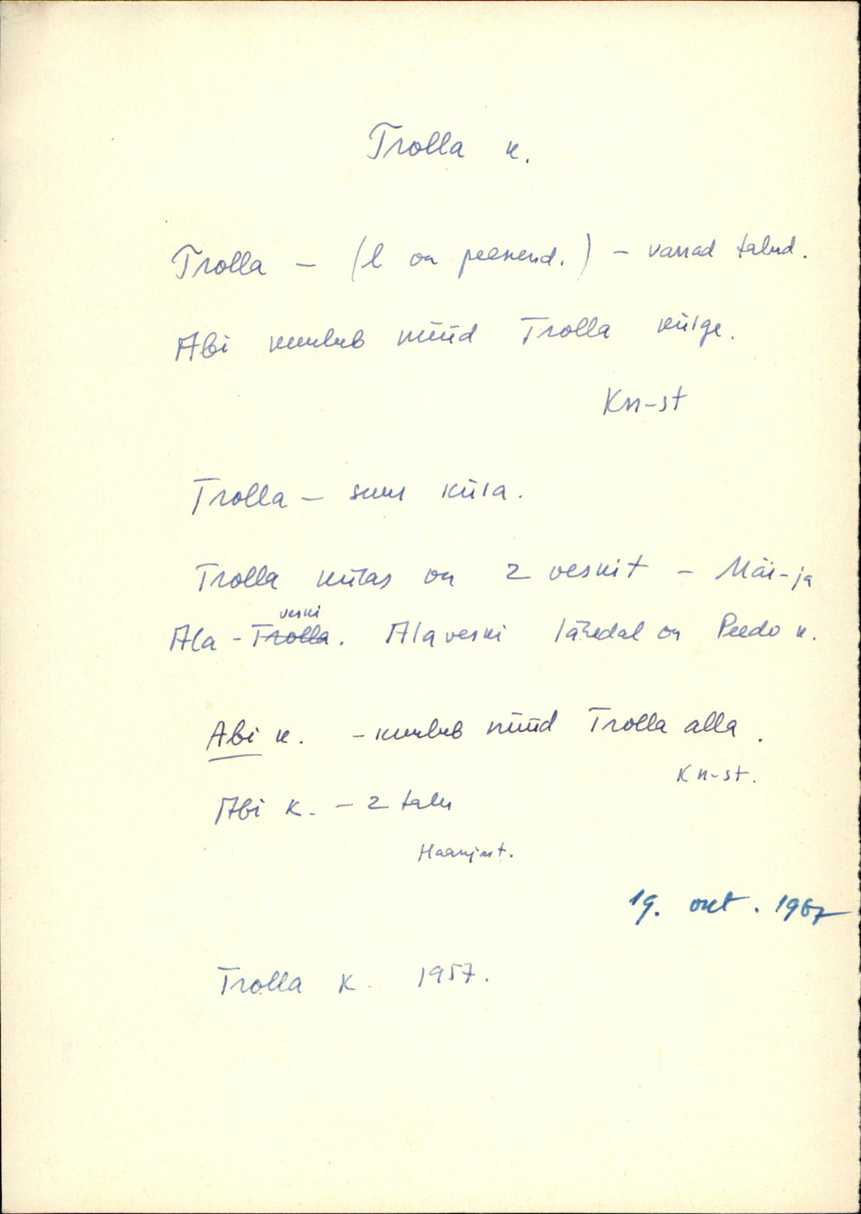 Trolla k.
Trolla – (l on peenend.) – vanad talud.
Abi kuulub nüüd Trolla külge.
Kn-st
Trolla – suur küla.
Trolla külas on 2 veskit – Mäe- ja
veski
Ala - Trolla. Alaveski lähedal on Peedo k.
Abi k. – kuulub nüüd Trolla alla.
Kn-st.
Abi k. – 2 talu
Haanjast.
19. okt. 1967
Trolla k. 1957.